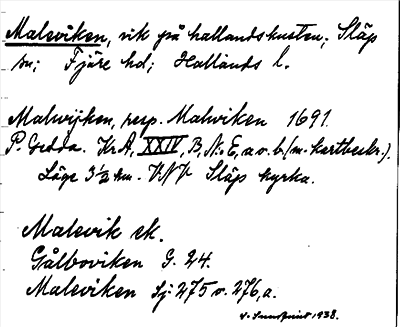 Maleviken, vik på hallandskusten; Släp
sn; Fjäre hd; Hallands l.
Malwijken, resp. Malviken 1691.
P. Gedda. Kr A, XXIV, B, No E, a o. b. (m. kartbeskr.).
Läge 3½ km. VNV Släp kyrka.
Malevik ek.
Gålboviken G. 24.
Maleviken Sj. 275 o. 276, a.
1938.